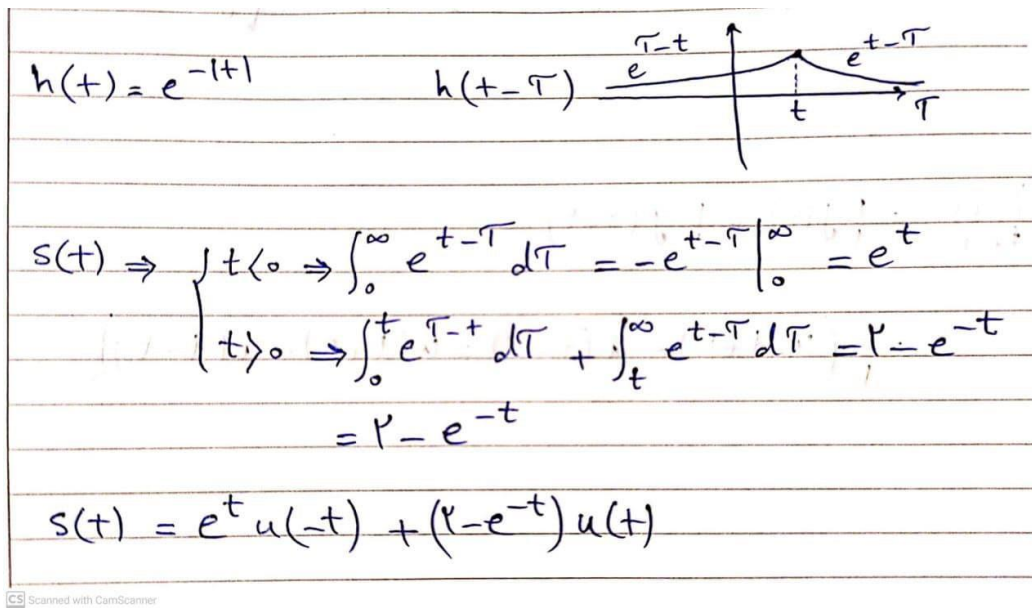 h(t) = e^{-|t|}    h(t-τ)    e^{τ-t}    e^{t-τ}    t    τ
s(t) ⇒ { t<0 ⇒ ∫_0^∞ e^{t-τ} dτ = -e^{t-τ} |_0^∞ = e^t
t>0 ⇒ ∫_0^t e^{τ-t} dτ + ∫_t^∞ e^{t-τ} dτ = ۲ - e^{-t}
= ۲ - e^{-t}
s(t) = e^t u(-t) + (۲-e^{-t}) u(t)
CS Scanned with CamScanner